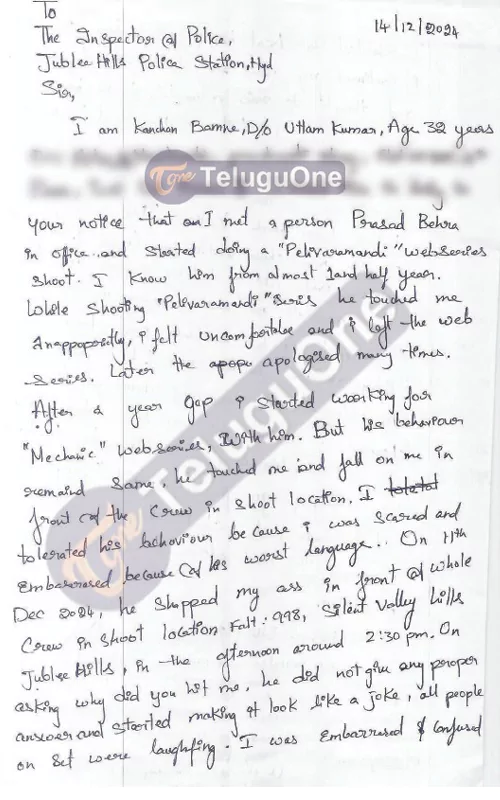 To
14/12/2024
The Inspector of Police,
Jublee Hills Police Station, Hyd
Sir,
I am Kanchan Bamne, D/o Uttam Kumar, Age 32 years
TeluguOne
your notice that on I met a person Prasad Behra
in office and started doing a "Pelivaramandi" webseries
shoot. I know him from almost 1 and half year.
While shooting "Pelivaramandi" series he touched me
inappopositly, i felt uncomfortable and i left the web
series. Later the apopo apologised many times.
After a year gap i started woorking for
"Mechanic" webseries, with him. But his behaviour
remaind same, he touched me and fall on me in
front of the crew in shoot location. I toletat
tolerated his behaviour because i was scared and
Embarrased because of his worst language.. On 11th
Dec 2024, he slapped my ass in front of whole
Crew in shoot location Falt: 998, Silent Valley hills
Jublee Hills, in the afternoon around 2:30 pm. On
asking why did you hit me, he did not give any proper
answer and started making it look like a joke, all people
on set were laughfing. I was Embarrased & Confused
TeluguOne